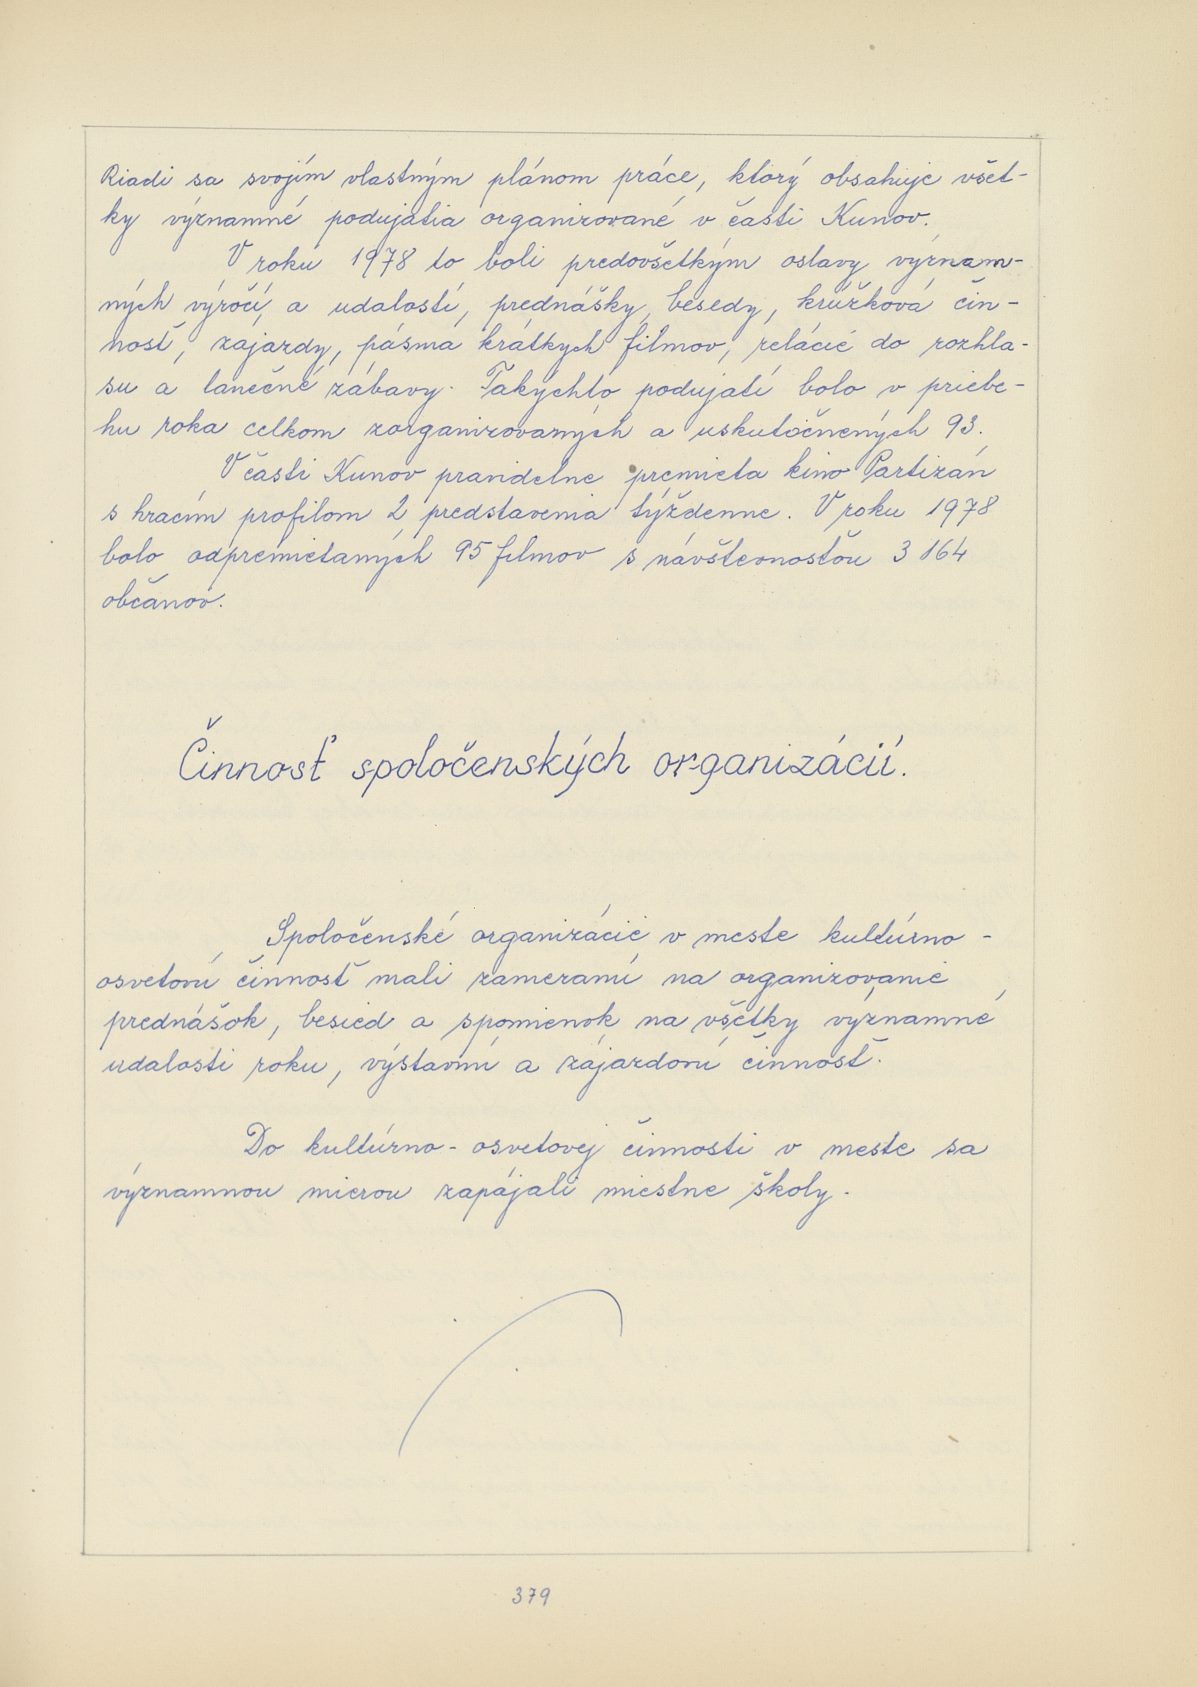 Riadi sa svojím vlastným plánom práce, ktorý obsahuje všet-
ky významné podujatia organizované v časti Kunov.
V roku 1978 to boli predovšetkým oslavy význam-
ných výročí a udalostí, prednášky, besedy, krúžková čin-
nosť, zájazdy, pásma krátkych filmov, relácie do rozhla-
su a tanečné zábavy. Takýchto podujatí bolo v priebe-
hu roka celkom zorganizovaných a uskutočnených 93.
V časti Kunov pravidelne premieta kino Partizán
s hracím profilom 2 predstavenia týždenne. V roku 1978
bolo odpremietaných 95 filmov s návštevnosťou 3 164
občanov.
Činnosť spoločenských organizácií.
Spoločenské organizácie v meste kultúrno-
osvetovú činnosť mali zameranú na organizovanie
prednášok, besied a spomienok na všetky významné
udalosti roku, výstavnú a zájazdovú činnosť.
Do kultúrno-osvetovej činnosti v meste sa
významnou mierou zapájali miestne školy.
379